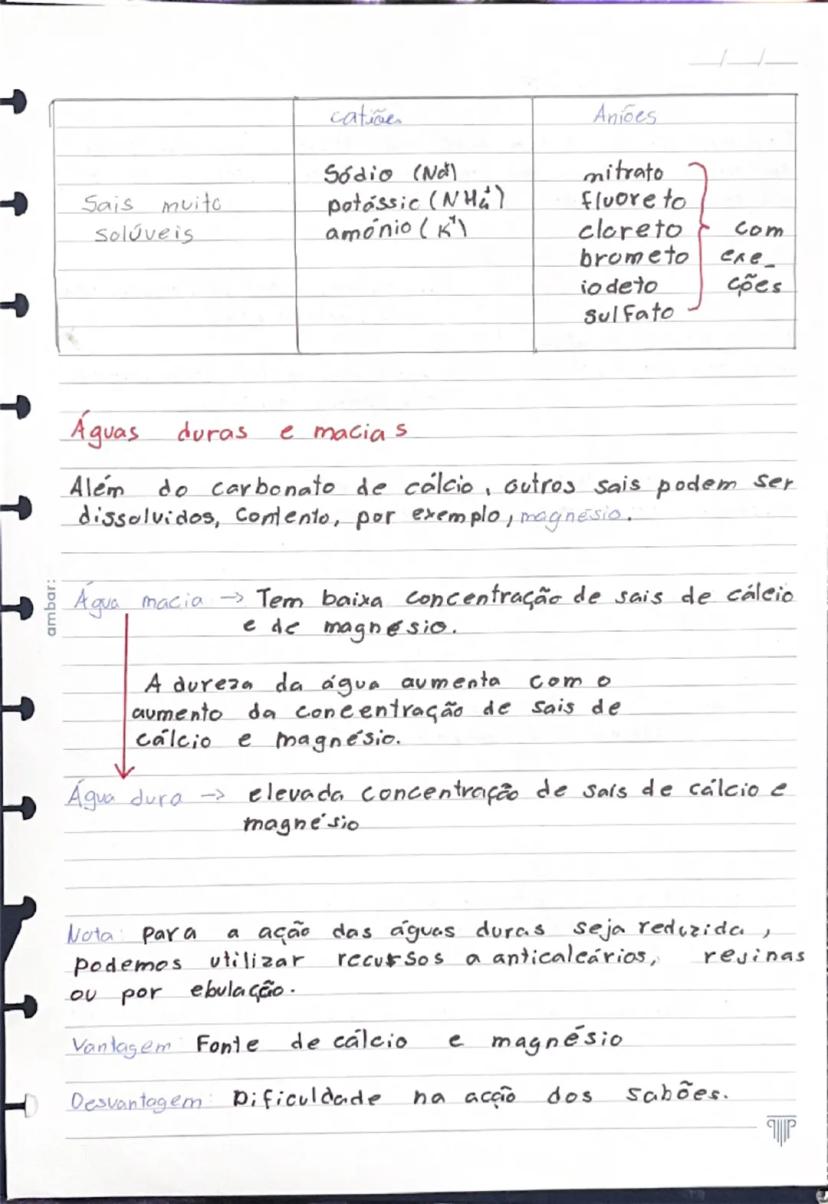 catiões Aniões
Sódio (Na⁺) nitrato
Sais muito potássio (NH₄⁺) fluoreto
solúveis amónio (K⁺) cloreto com
brometo exe_
iodeto ções
sulfato
Águas duras e macias
Além do carbonato de cálcio, outros sais podem ser
dissolvidos, contento, por exemplo, magnésio.
ambar:
Água macia → Tem baixa concentração de sais de cálcio
e de magnésio.
A dureza da água aumenta com o
aumento da concentração de sais de
cálcio e magnésio.
Água dura → elevada concentração de sais de cálcio e
magnésio
Nota: para a ação das águas duras seja reduzida,
podemos utilizar recursos a anticalcários, resinas
ou por ebulação.
Vantagem: Fonte de cálcio e magnésio
Desvantagem: Dificuldade na acção dos sabões.